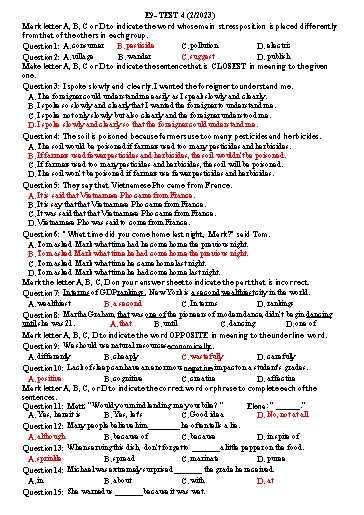 E9- TEST 4 (2/2023)
Mark letter A, B, C or D to indicate the word whose main stress position is placed differently
from that of the others in each group.
Question 1: A. consumer B. pesticide C. pollution D. electric
Question 2: A. village B. wander C. suggest D. publish
Make letter A, B, C or D to indicate the sentence that is CLOSEST in meaning to the given
one.
Question 3: I spoke slowly and clearly. I wanted the foreigner to understand me.
A. The foreigner could understand me easily as I speak slowly and clearly.
B. I spoke so slowly and clearly that I wanted the foreigner to understand me.
C. I spoke not only slowly but also clearly and the foreigner understood me.
D. I spoke slowly and clearly so that the foreigner could understand me.
Question 4: The soil is poisoned because farmers use too many pesticides and herbicides.
A. The soil would be poisoned if farmers used too many pesticides and herbicides.
B. If farmers used fewer pesticides and herbicides, the soil wouldn't be poisoned.
C. If farmers used too many pesticides and herbicides, the soil will be poisoned.
D. The soil won't be poisoned if farmers used fewer pesticides and herbicides.
Question 5: They say that Vietnamese Pho came from France.
A. It is said that Vietnamese Pho came from France.
B. It is say that that Vietnamese Pho came from France.
C. It was said that that Vietnamese Pho came from France.
D. Vietnamese Pho was said to come from France.
Question 6: " What time did you come home last night, Mark?" said Tom.
A. Tom asked Mark what time had he come home the previous night.
B. Tom asked Mark what time he had come home the previous night.
C. Tom asked Mark what time he came home last night.
D. Tom asked Mark what time he had come home last night.
Mark the letter A, B, C, D on your answer sheet to indicate the part that is incorrect.
Question 7: In terms of GDP rankings, New York is a second wealthiest city in the world.
A. wealthiest B. a second C. In terms D. rankings
Question 8: Martha Graham, that was one of the pioneer of modern dance, didn't begin dancing
until she was 21. A. that B. until C. dancing D. one of
Mark letter A, B, C, D to indicate the word OPPOSITE in meaning to the underline word.
Question 9: We should use natural resources economically.
A. differently B. cheaply C. wastefully D. carefully
Question 10: Lack of sleep can have an enormous negative impact on a student's grades.
A. positive B. cognitive C. creative D. affective
Mark letter A, B, C, or D to indicate the correct word or phrase to complete each of the
sentences.
Question 11: Matt: "Would you mind lending me your bike? " Elena: "______"
A. Yes, here it is B. Yes, let's C. Good idea D. No, not at all
Question 12: Many people believe him______ he often tells a lie.
A. although B. because of C. because D. in spite of
Question 13: When serving this dish, don't forget to ______ a little pepper on the food.
A. sprinkle B. spread C. marinate D. puree
Question 14: Michael was extremely surprised ______ the grade he received.
A. in B. about C. with D. at
Question 15: She warned us ______ because it was wet.